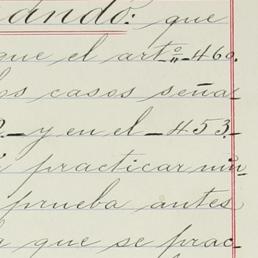 ando: que
que el arto 460.
los casos seña-
2.- y en el 453.-
practicar nin-
prueba antes
que se prac-